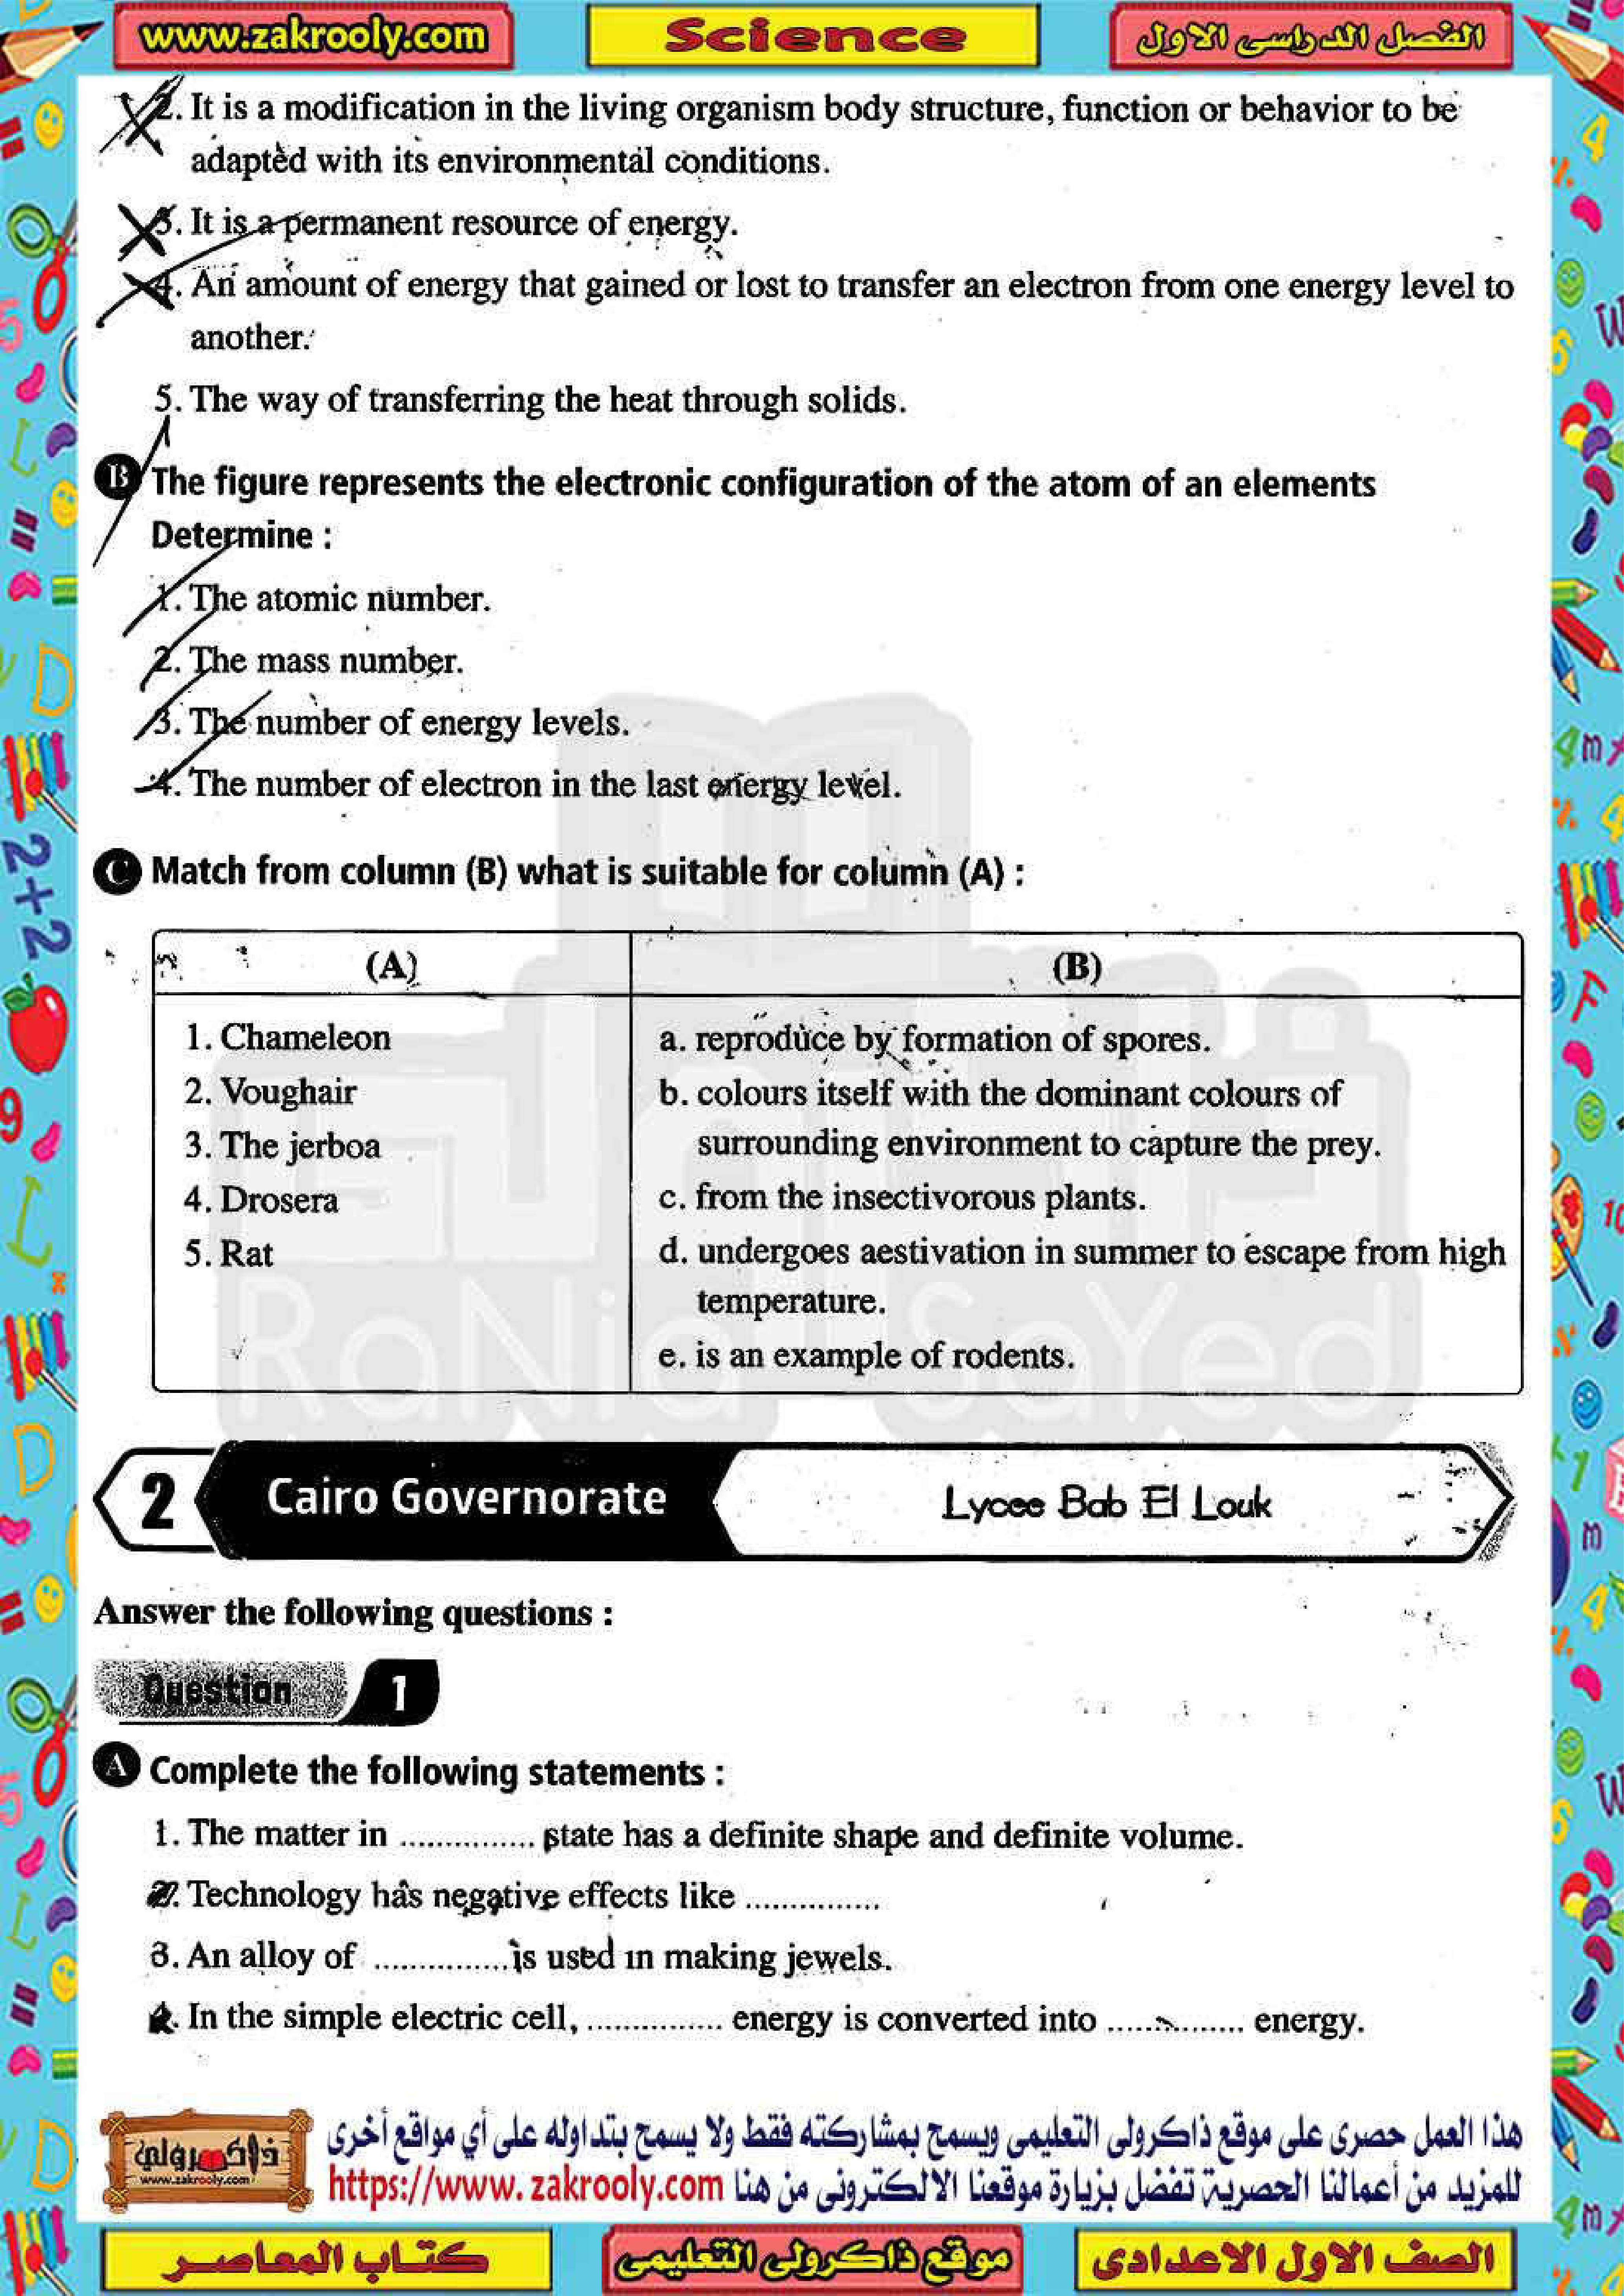 www.zakrooly.com
Science
الفصل الدراسى الاول
2. It is a modification in the living organism body structure, function or behavior to be
adapted with its environmental conditions.
3. It is a permanent resource of energy.
4. An amount of energy that gained or lost to transfer an electron from one energy level to
another.
5. The way of transferring the heat through solids.
B The figure represents the electronic configuration of the atom of an elements
Determine :
1. The atomic number.
2. The mass number.
3. The number of energy levels.
4. The number of electron in the last energy level.
C Match from column (B) what is suitable for column (A) :
(A)
(B)
1. Chameleon
2. Voughair
3. The jerboa
4. Drosera
5. Rat
a. reproduce by formation of spores.
b. colours itself with the dominant colours of
surrounding environment to capture the prey.
c. from the insectivorous plants.
d. undergoes aestivation in summer to escape from high
temperature.
e. is an example of rodents.
RaNia SaYed
2 Cairo Governorate
Lycee Bab El Louk
Answer the following questions :
Question 1
A Complete the following statements :
1. The matter in .............. state has a definite shape and definite volume.
2. Technology has negative effects like ..............
3. An alloy of .............. is used in making jewels.
4. In the simple electric cell, .............. energy is converted into .............. energy.
ذاكرولي
www.zakrooly.com
هذا العمل حصرى على موقع ذاكرولى التعليمى ويسمح بمشاركته فقط ولا يسمح بتداوله على أي مواقع أخرى
للمزيد من أعمالنا الحصرية تفضل بزيارة موقعنا الالكترونى من هنا https://www. zakrooly.com
كتاب المعاصر
موقع ذاكرولى التعليمى
الصف الاول الاعدادى